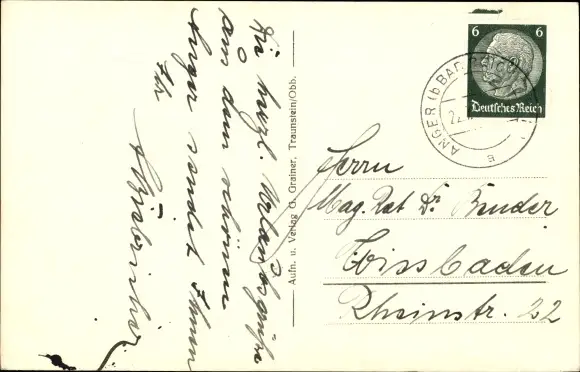 Die herzl. Urlaubsgrüße
aus dem schönen
Anger sendet Ihnen
Ihr
Aufn. u. Verlag G. Grainer, Traunstein/Obb.
6 6
Deutsches Reich
ANGER (b BAD REICH
22.
a
Herrn
Mag. Rat Dr. Binder
Wiesbaden
Rheinstr. 22